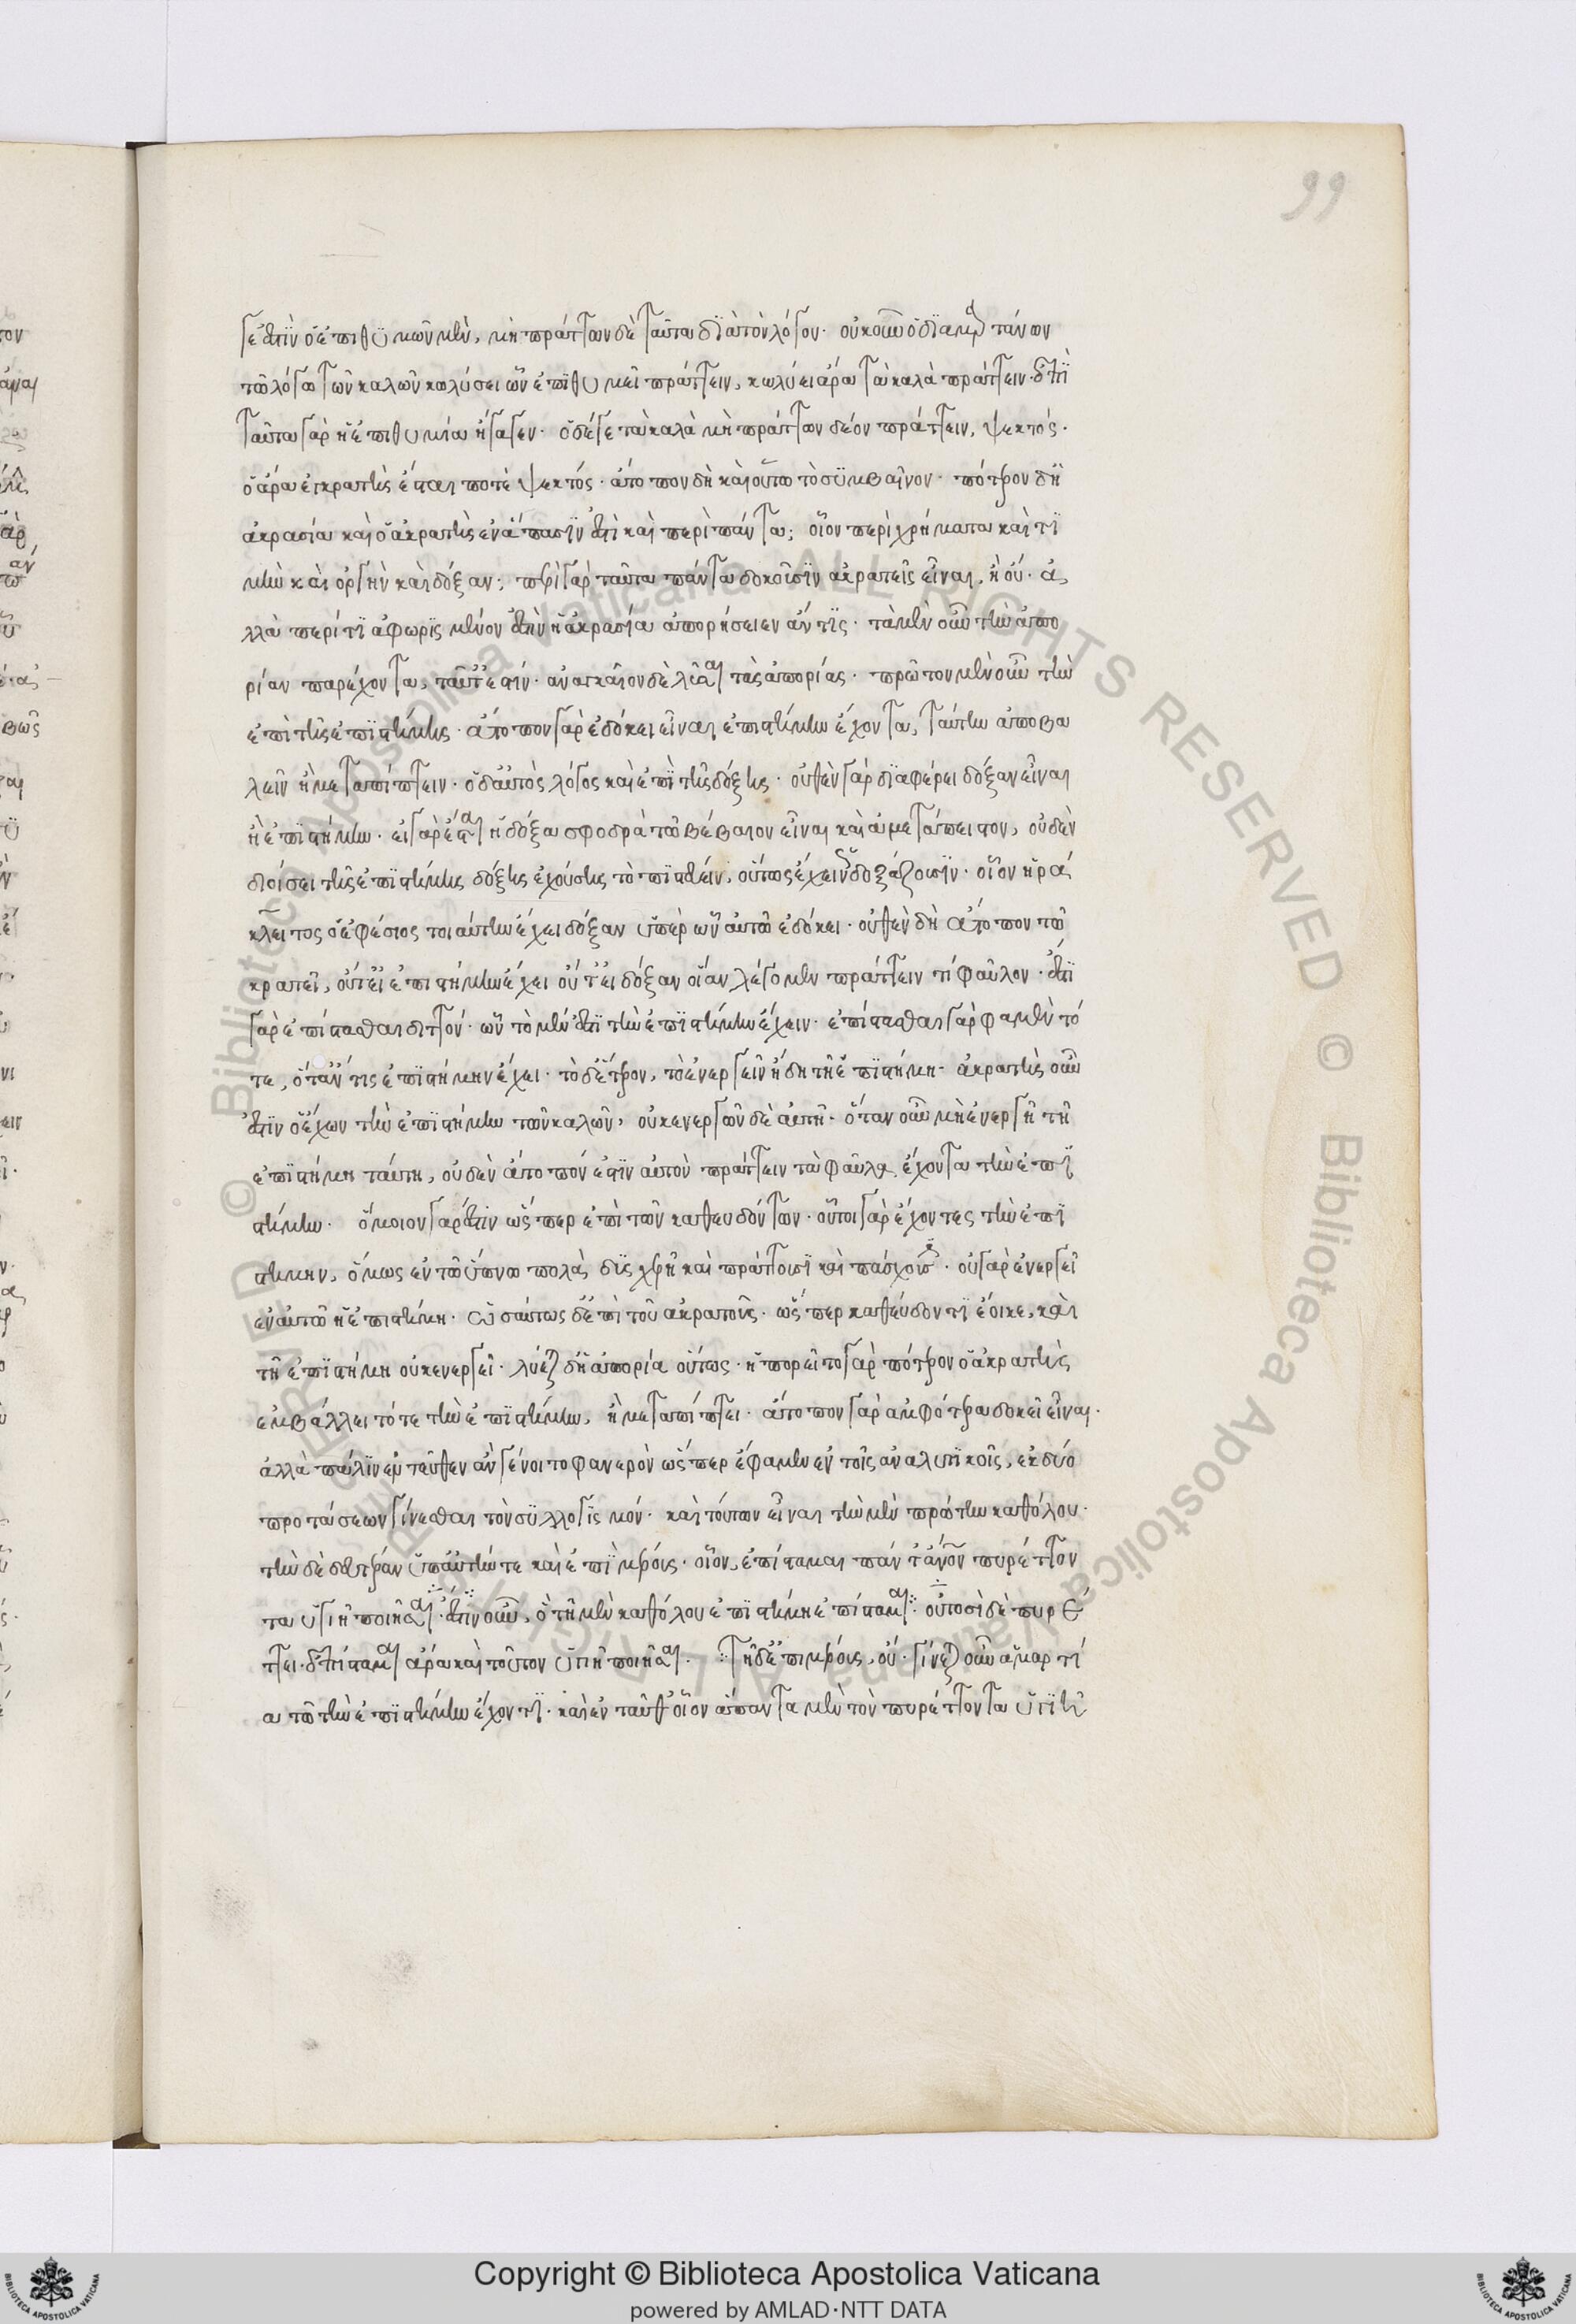 γέ ἐστιν ὁ ἐπιθυμῶν μὲν, μὴ πράττων δὲ ταῦτα διὰ τὸν λόγον· οὐκοῦν ὁ διαμαρτάνων
τῶ λόγω τῶν καλῶν κωλύσει ὧν ἐπιθυμεῖ πράττειν, κωλύει ἄρα τὰ καλὰ πράττειν· ἐπὶ
ταῦτα γὰρ ἡ ἐπιθυμία ἤγαγεν· ὁ δέ γε τὰ καλὰ μὴ πράττων δέον πράττειν, ψεκτός·
ὁ ἄρα ἐγκρατὴς ἔσται ποτὲ ψεκτός· ἄτοπον δὴ καὶ οὕτω τὸ συμβαῖνον· πότερον δὴ
ἀκρασία καὶ ὁ ἀκρατὴς ἐν ἅπασίν ἐστι καὶ περὶ πάντα; οἷον περὶ χρήματα καὶ τι
μὴν καὶ ὀργὴν καὶ δόξαν; περὶ γὰρ ταῦτα πάντα δοκοῦσιν ἀκρατεῖς εἶναι, ἢ οὔ· ἀ
λλὰ περί τι ἀφωρισμένον ἐστὶν ἡ ἀκρασία ἀπορήσειεν ἄν τις· τὰ μὲν οὖν τὴν ἀπο
ρίαν παρέχοντα, ταῦτ' ἐστίν· ἀναγκαῖον δὲ λῦσαι τὰς ἀπορίας· πρῶτον μὲν οὖν τὴν
ἐπὶ τῆς ἐπιστήμης· ἄτοπον γὰρ ἐδόκει εἶναι ἐπιστήμην ἔχοντα, ταύτην ἀποβα
λεῖν ἢ μεταπίπτειν· ὁ δ' αὐτὸς λόγος καὶ ἐπὶ τῆς δόξης· οὐθὲν γὰρ διαφέρει δόξαν εἶναι
ἢ ἐπιστήμην· εἰ γὰρ ἔσται ἡ δόξα σφοδρὰ τῶ βέβαιον εἶναι καὶ ἀμετάπειστον, οὐδὲν
διοίσει τῆς ἐπιστήμης δόξης ἐχούσης τὸ πιστεύειν, οὕτως ἔχειν ὡς δοξάζουσιν· οἷον ἡρά
κλειτος ὁ ἐφέσιος τοιαύτην ἔχει δόξαν ὑπὲρ ὧν αὐτῶ ἐδόκει· οὐθὲν δὴ ἄτοπον τῶ
κρατεῖ, οὔτ' εἰ ἐπιστήμην ἔχει οὔτ' εἰ δόξαν οἵαν λέγομεν πράττειν τι φαῦλον· ἔστι
γὰρ ἐπίστασθαι διττόν· ὧν τὸ μέν ἐστι τὴν ἐπιστήμην ἔχειν· ἐπίστασθαι γὰρ φαμὲν τό
τε, ὅταν τις ἐπιστήμην ἔχει· τὸ δ' ἕτερον, τὸ ἐνεργεῖν ἤδη τῆ ἐπιστήμη· ἀκρατὴς οὖν
ἐστιν ὁ ἔχων τὴν ἐπιστήμην τῶν καλῶν, οὐκ ἐνεργῶν δὲ αὐτῆ· ὅταν οὖν μὴ ἐνεργῆ τῆ
ἐπιστήμη ταύτη, οὐδὲν ἄτοπόν ἐστιν αὐτὸν πράττειν τὰ φαῦλα ἔχοντα τὴν ἐπι
στήμην· ὅμοιον γάρ ἐστιν ὥσπερ ἐπὶ τῶν καθευδόντων· οὗτοι γὰρ ἔχοντες τὴν ἐπι
στήμην, ὅμως ἐν τῶ ὕπνω πολλὰ δυσχερῆ καὶ πράττουσι καὶ πάσχουσι· οὐ γὰρ ἐνεργεῖ
ἐν αὐτῶ ἡ ἐπιστήμη· ὡσαύτως δ' ἐπὶ τοῦ ἀκρατοῦς· ὥσπερ καθεύδοντι ἔοικε, καὶ
τῆ ἐπιστήμη οὐκ ἐνεργεῖ· λύεται δὴ ἡ ἀπορία οὕτως· ἠπορεῖτο γὰρ πότερον ὁ ἀκρατὴς
ἐμβάλλει τότε τὴν ἐπιστήμην, ἢ μεταπίπτει· ἄτοπον γὰρ ἀμφότερα δοκεῖ εἶναι·
ἀλλὰ πάλιν ἐντεῦθεν ἂν γένοιτο φανερὸν ὥσπερ ἔφαμεν ἐν τοῖς ἀναλυτικοῖς, ἐκ δύο
προτάσεων γίνεσθαι τὸν συλλογισμόν· καὶ τούτων εἶναι τὴν μὲν πρώτην καθόλου·
τὴν δὲ δευτέραν ὑπ' αὐτήν τε καὶ ἐπὶ μέρους· οἷον, ἐπίσταμαι πάντ' ἄνθρωπον πυρέττον
τα ὑγιῆ ποιῆσαι· ἔστιν οὖν, ὃ τῆ μὲν καθόλου ἐπιστήμη ἐπίσταμαι· οὑτοσὶ δὲ πυρέ
ττει· ἐπίσταμαι ἄρα καὶ τοῦτον ὑγιῆ ποιῆσαι· τῆ δ' ἐπὶ μέρους, οὔ· γίνεται οὖν ἁμαρτί
α τῶ τὴν ἐπιστήμην ἔχοντι· καὶ ἐνταῦθ' οἷον ἅπαντα μὲν τὸν πυρέττοντα ὑγιῆ